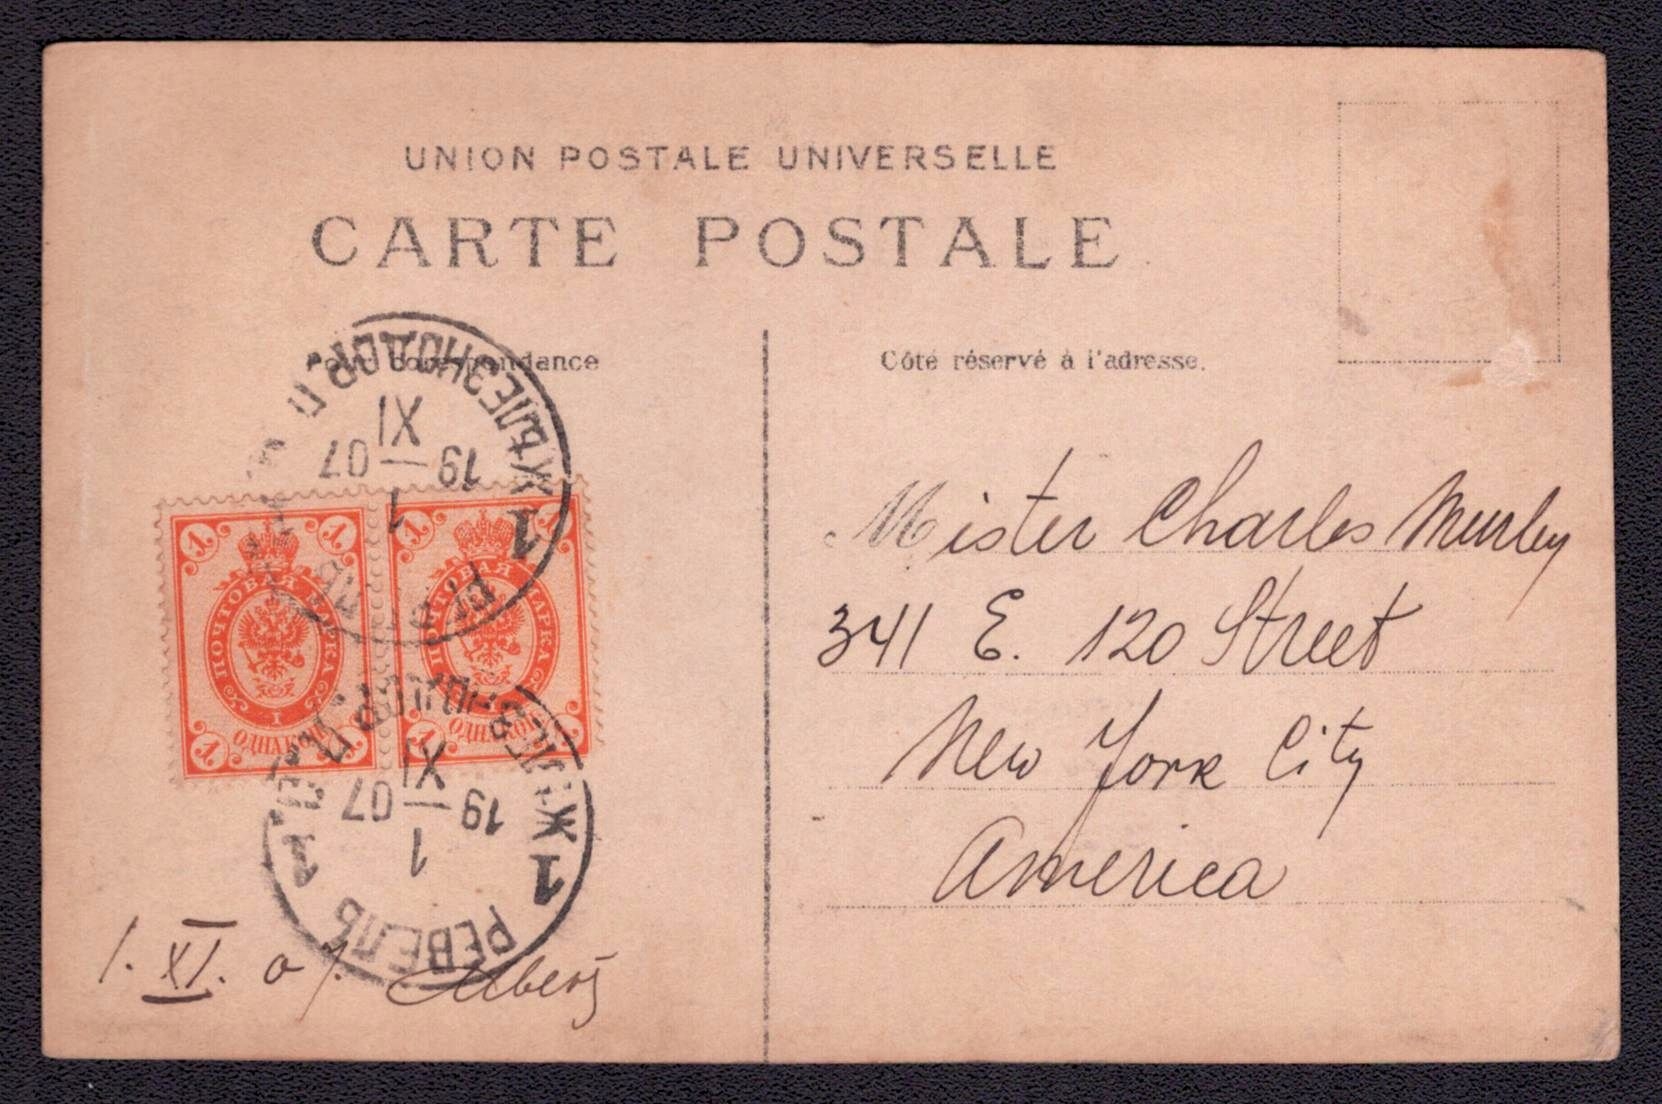 UNION POSTALE UNIVERSELLE
CARTE POSTALE
Pour Correspondance
Côté réservé à l'adresse.
РЕВЕЛЬ
1
1
XI
19 07
1 1
ПОЧТОВАЯ МАРКА
1
1
1
1
ОДНА КОП.
I
ПОЧТОВАЯ МАРКА
1
1
1
ОДНА КОП.
РЕВЕЛЬ
1
1
XI
19 07
1
Mister Charles Murley
341 E. 120 Street
New York City
America
1. XI. 07. Albert